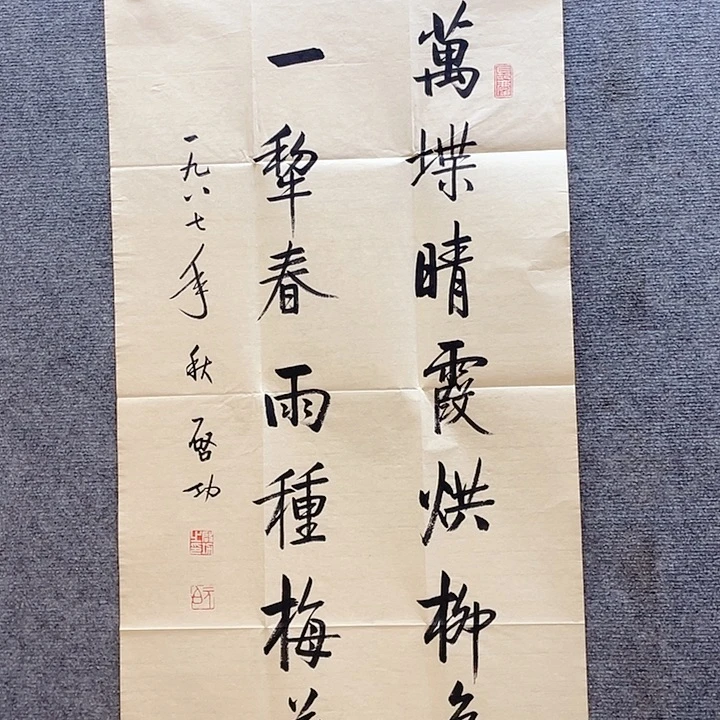 萬堞晴霞烘柳
一犂春雨種梅
一九八七年秋 啓功